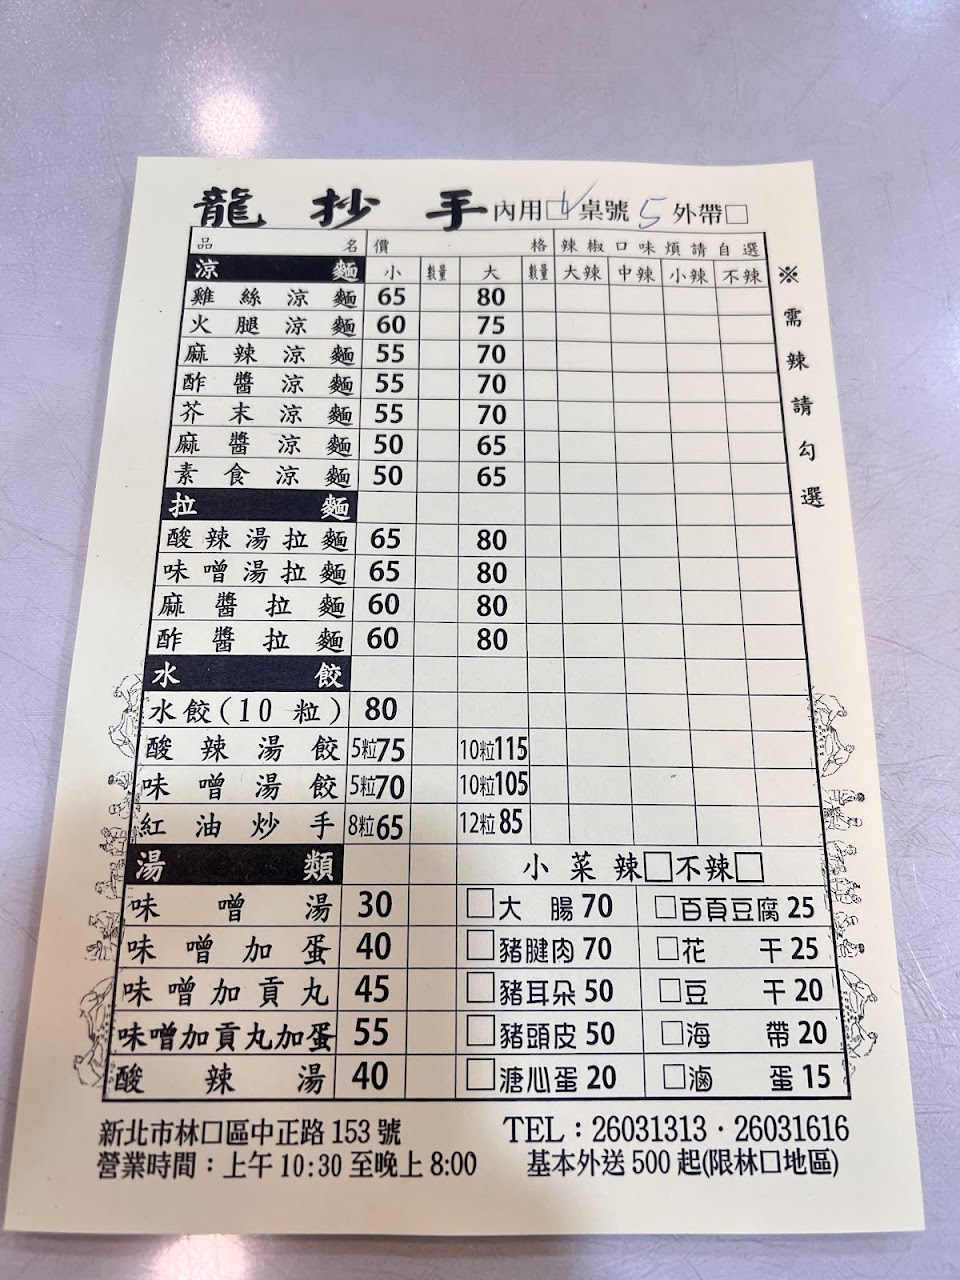 龍抄手 內用□✓ 桌號 5 外帶□
品名 價格 辣椒口味煩請自選
涼麵 小 數量 大 數量 大辣 中辣 小辣 不辣
雞絲涼麵 65 80
火腿涼麵 60 75
麻辣涼麵 55 70
酢醬涼麵 55 70
芥末涼麵 55 70
麻醬涼麵 50 65
素食涼麵 50 65
拉麵
酸辣湯拉麵 65 80
味噌湯拉麵 65 80
麻醬拉麵 60 80
酢醬拉麵 60 80
水餃
水餃(10粒) 80
酸辣湯餃 5粒75 10粒115
味噌湯餃 5粒70 10粒105
紅油炒手 8粒65 12粒85
湯類 小菜辣□不辣□
味噌湯 30 □大腸 70 □百頁豆腐 25
味噌加蛋 40 □豬腱肉 70 □花干 25
味噌加貢丸 45 □豬耳朵 50 □豆干 20
味噌加貢丸加蛋 55 □豬頭皮 50 □海帶 20
酸辣湯 40 □溏心蛋 20 □滷蛋 15
※需辣請勾選
新北市林口區中正路153號 TEL：26031313·26031616
營業時間：上午10:30至晚上8:00 基本外送500起(限林口地區)